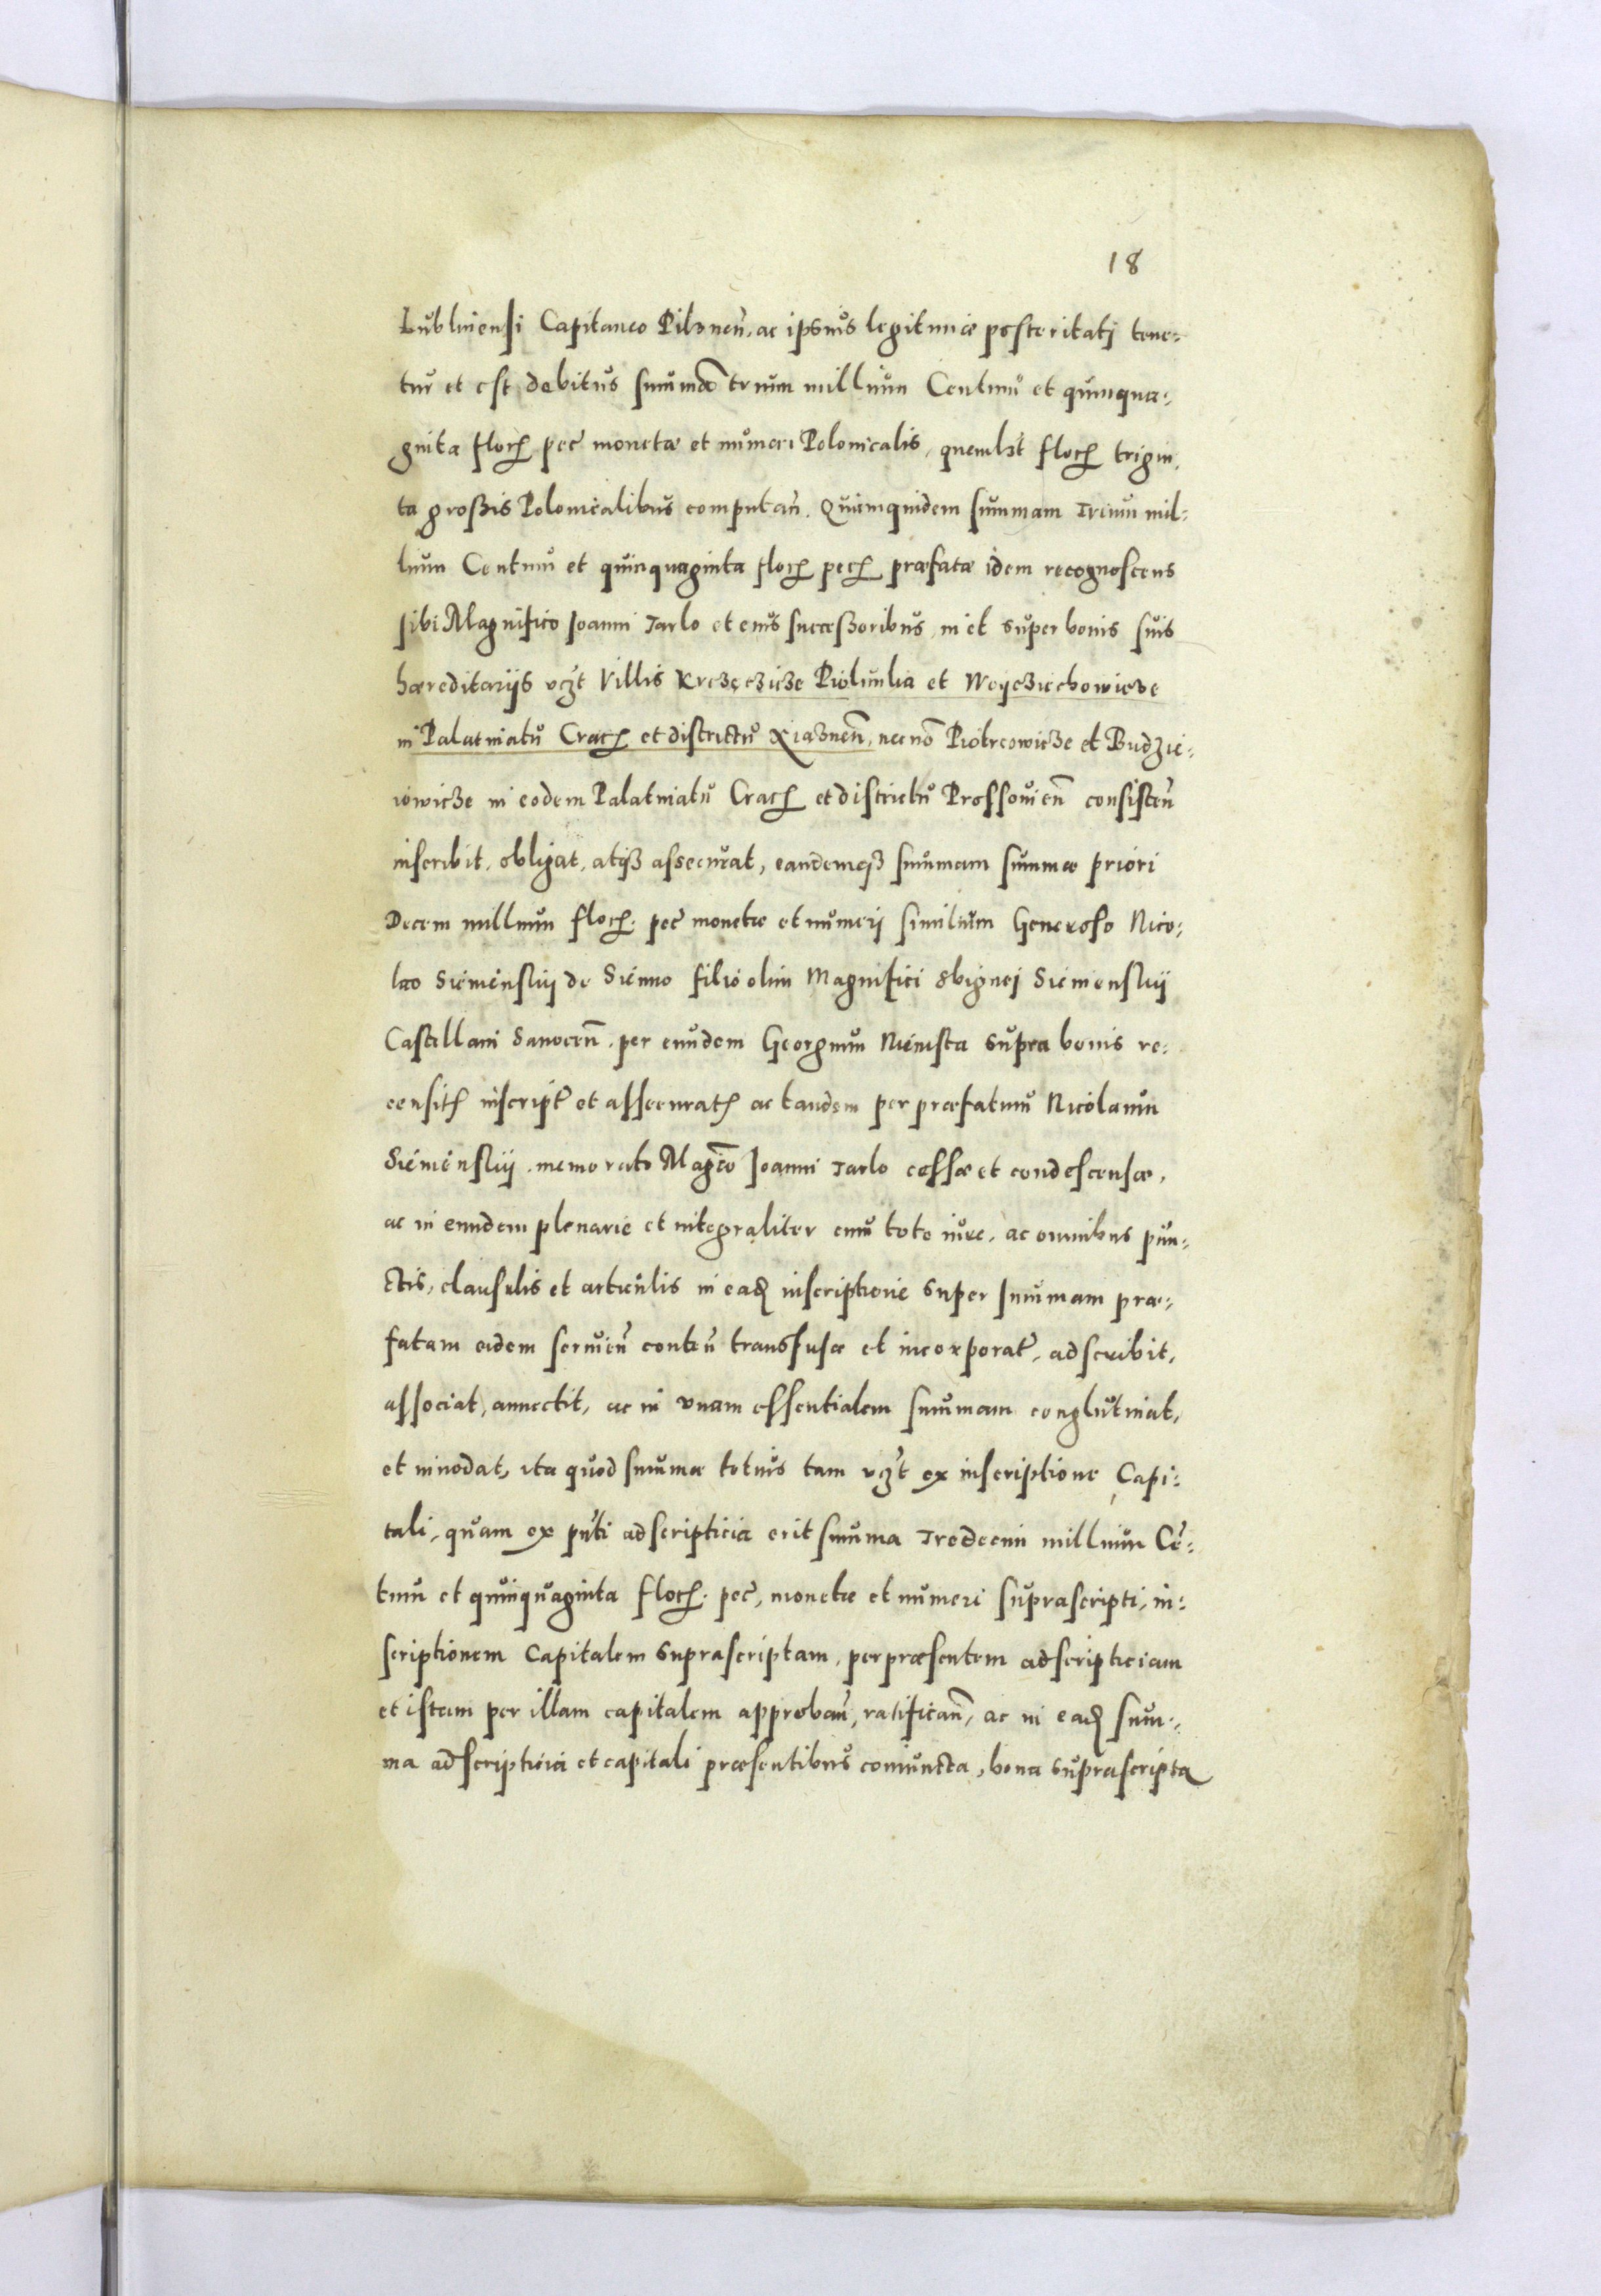 18
Lubliniensi Capitaneo Pilznen̄. ac ipsius legitimæ posteritatj tene:
tur et est debitus summæ trium millium Centum et quinqua:
ginta floꝝ pec̄ monetæ et numeri Polonicalis, quemlꝫt floꝝ trigin,
ta großis Polonicalibus computan̄. Quamquidem summam Trium mil:
lium Centum et quinquaginta floꝝ pecꝝ præfatæ idem recognoscens
sibi Magnifico Joanni Tarlo et eius succeßoribus, in et super bonis suis
hæreditariis vcꝫt Villis Krczęczicze Piolunka et Woycziechowicze
in Palatinatu Cracꝝ et districtu Xiaznen̄, necnō Piotrcowicze et Budzie:
iowicze in eodem Palatinatu Cracꝝ et districtu Prossouien̄ consisten̄
inscribit, obligat, atqꝫ assecurat, eandemqꝫ summam summæ priori
Decem millium floꝝ. pec̄ monetæ et numerj similium Generoso Nico:
lao Siemienskij de Sienno filio olim Magnifici Sbignej Siemienskij
Castellani Sanocen̄. per eundem Georgium Niemsta supra bonis re:
censitꝝ inscript̄ et assecuratꝝ ac tandem per præfatum Nicolaum
Siemienskij. memorato Magc̄o Joanni Tarlo cessæ et condescensæ,
ac in eundem plenarie et integraliter cum toto iure, ac omnibus pun:
ctis, clausulis et articulis in eadꝫ inscriptione super summam præ:
fatam eidem seruien̄ conten̄ transfusæ et incorporat̄, adscribit,
associat, annectit, ac in vnam essentialem summam conglutinat,
et innodat, ita quod summæ totius tam vcꝫt ex inscriptione Capi:
tali, quam ex pn̄ti adscripticia erit summa Tredecim millium Cē:
tum et quinquaginta floꝝ. pec̄, monetæ et numeri suprascripti, in:
scriptionem Capitalem suprascriptam, per præsentem adscripticiam
et istam per illam capitalem approban̄, ratifican̄, ac in eadꝫ sum:
ma adscripticia et capitali præsentibus coniuncta, bona suprascripta